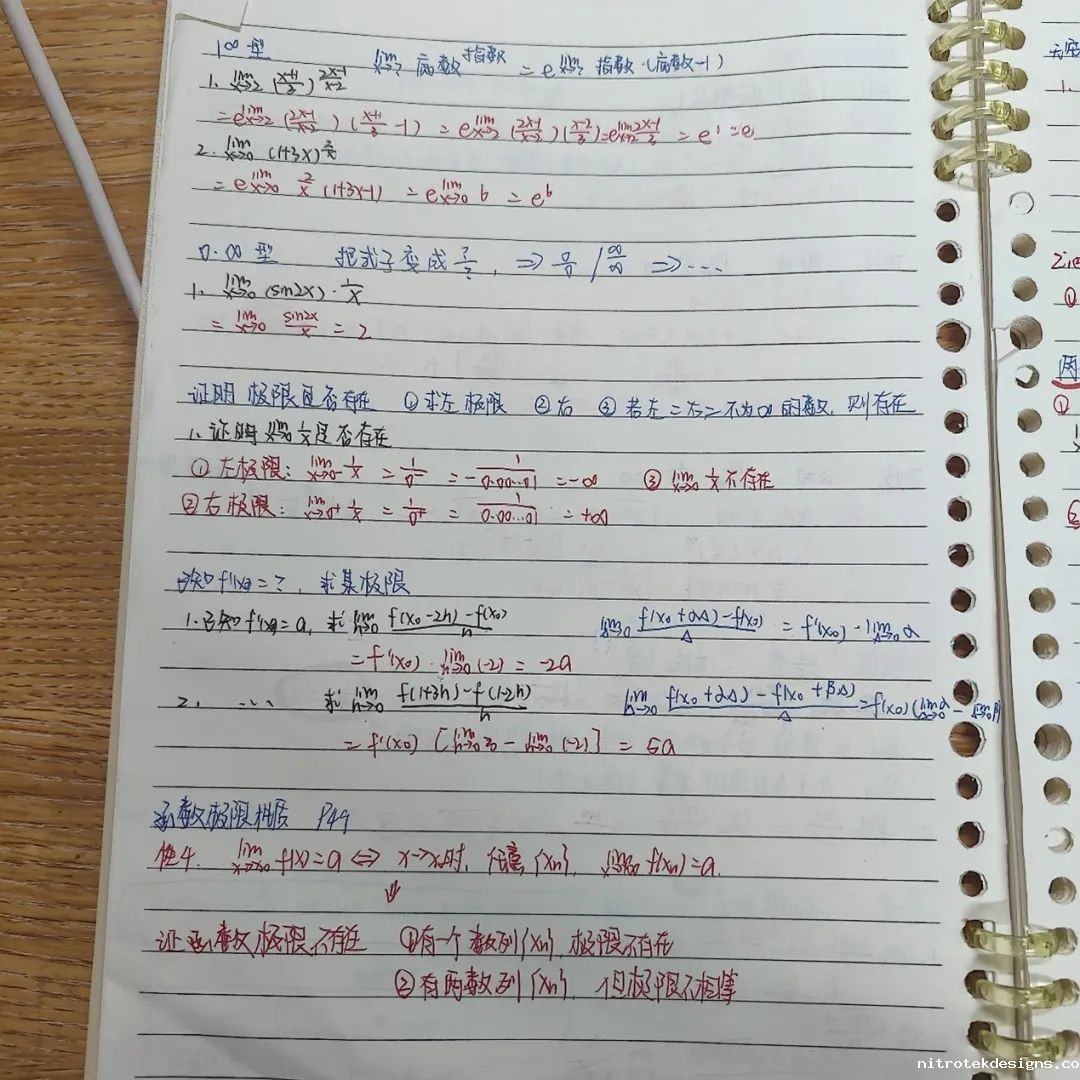 1^∞型 lim x→? 底数^指数 = e^lim x→? 指数·(底数-1)
1. lim x→2 (x+1/3)^2x-1/x-2
= e^lim x→2 (2x-1/x-2)(x+1/3 -1) = e^lim x→2 (2x-1/x-2)(x-2/3) = e^lim x→2 2x-1/3 = e^1 = e
2. lim x→0 (1+3x)^2/x
= e^lim x→0 2/x (1+3x-1) = e^lim x→0 6 = e^6
0·∞型 把式子变成 ?/?, ⇒ 0/0 / ∞/∞ ⇒ ...
1. lim x→0 (sin2x)·1/x
= lim x→0 sin2x/x = 2
证明极限是否存在 ①求左极限 ②右 ③若左=右=不为∞的数,则存在
1. 证明 lim x→0 1/x 是否存在
①左极限: lim x→0- 1/x = 1/0- = -1/0.00...01 = -∞ ③ lim x→0 1/x 不存在
②右极限: lim x→0+ 1/x = 1/0+ = 1/0.00...01 = +∞
已知f'(x₀)=?, 求某极限
1. 已知f'(x₀)=a, 求 lim h→0 f(x₀-2h)-f(x₀)/h lim Δ→0 f(x₀+αΔ)-f(x₀)/Δ = f'(x₀)·lim Δ→0 α
= f'(x₀)·lim h→0 (-2) = -2a
2. ... 求 lim h→0 f(1+3h)-f(1-2h)/h lim Δ→0 f(x₀+αΔ)-f(x₀+βΔ)/Δ = f(x₀)(lim Δ→0 α - lim Δ→0 β
= f'(x₀) [lim h→0 3 - lim h→0 (-2)] = 5a
函数极限性质 P49
性4. lim x→x₀ f(x)=a ⇔ x→x₀时, 任意{xn}, f(xn)=a.
⇓
证函数极限不存在 ①有一个数列{xn}, 极限不存在
②有两数列{xn}, 但极限不相等
nitrotekdesigns.co